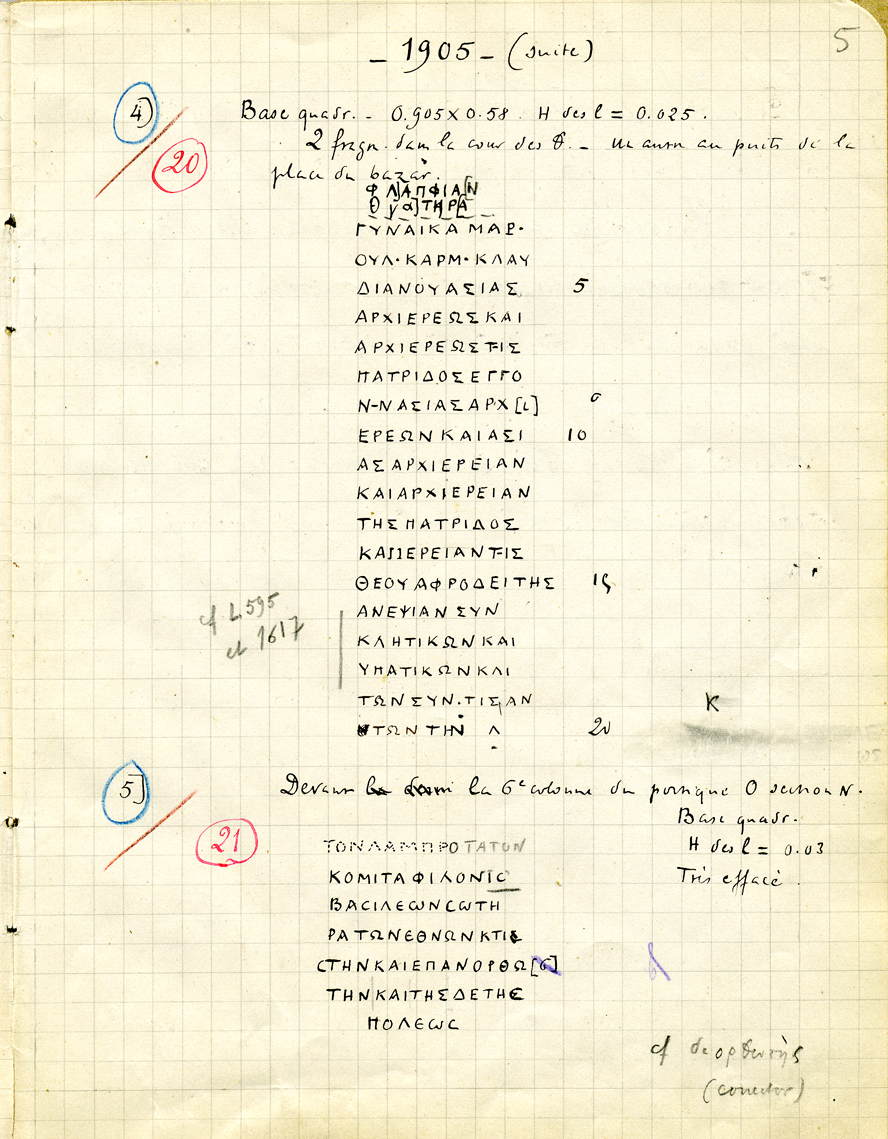 5
- 1905 - (suite)
4)
20
Base quadr. - 0.905 x 0.58. H des l = 0.025.
2 fragm. dans la cour des Θ. - un autre au puits de la
place du bazar.
ΦΛ]ΑΠΦΙΑ[Ν
Θυγα]ΤΗΡΑ
ΓΥΝΑΙΚΑ ΜΑΡ·
ΟΥΛ·ΚΑΡΜ·ΚΛΑΥ
ΔΙΑΝΟΥΑΣΙΑΣ 5
ΑΡΧΙΕΡΕΩΣΚΑΙ
ΑΡΧΙΕΡΕΩΣΤΗΣ
ΠΑΤΡΙΔΟΣΕΓΓΟ
ΝΗΝΑΣΙΑΣΑΡΧ[ι]
ΕΡΕΩΝΚΑΙΑΣΙ 10
ΑΣΑΡΧΙΕΡΕΙΑΝ
ΚΑΙΑΡΧΙΕΡΕΙΑΝ
ΤΗΣΠΑΤΡΙΔΟΣ
ΚΑΙΙΕΡΕΙΑΝΤΗΣ
ΘΕΟΥΑΦΡΟΔΕΙΤΗΣ 15
ΑΝΕΨΙΑΝΣΥΝ
cf L 595
et 1617
ΚΛΗΤΙΚΩΝΚΑΙ
ΥΠΑΤΙΚΩΝΚΛΙ
ΤΩΝΣΥΝ.ΤΙΣΑΝ
ΤΩΝΤΗΝ Λ 20
K
5)
21
Devant la 6e colonne du portique O section N.
Base quadr.
H des l = 0.03
Très effacé.
ΤΟΝΛΑΜΠΡΟΤΑΤΟΝ
ΚΟΜΙΤΑΦΙΛΟΝΙC
ΒΑCΙΛΕΩΝCΩΤΗ
ΡΑΤΩΝΕΘΝΩΝΚΤΙC
CΤΗΝΚΑΙΕΠΑΝΟΡΘΩ[σ]
ΤΗΝΚΑΙΤΗΣΔΕΤΗC
ΠΟΛΕΩC
cf
(corrector)